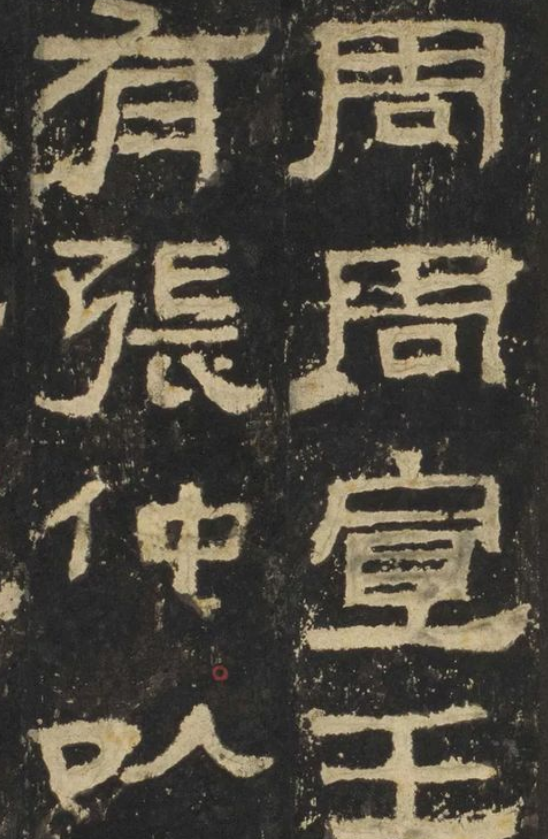 周周宣王
有張仲以